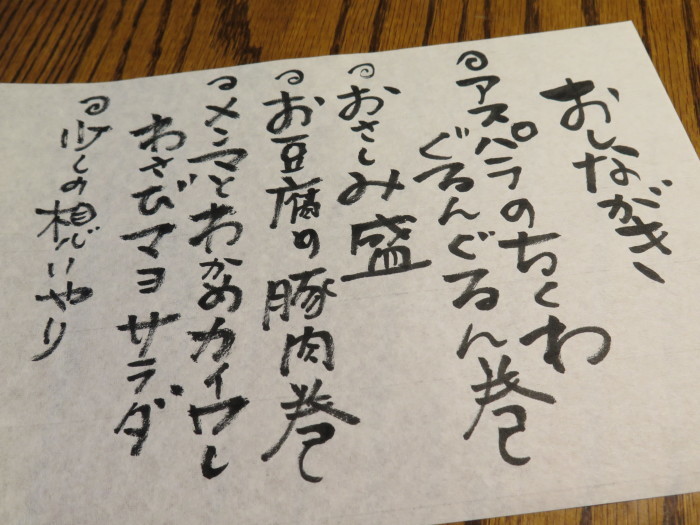 おしながき
アスパラのちくわ
ぐるんぐるん巻
おさしみ盛
お豆腐の豚肉巻
メンマとわかめカイワレ
わさびマヨサラダ
少しの想いやり